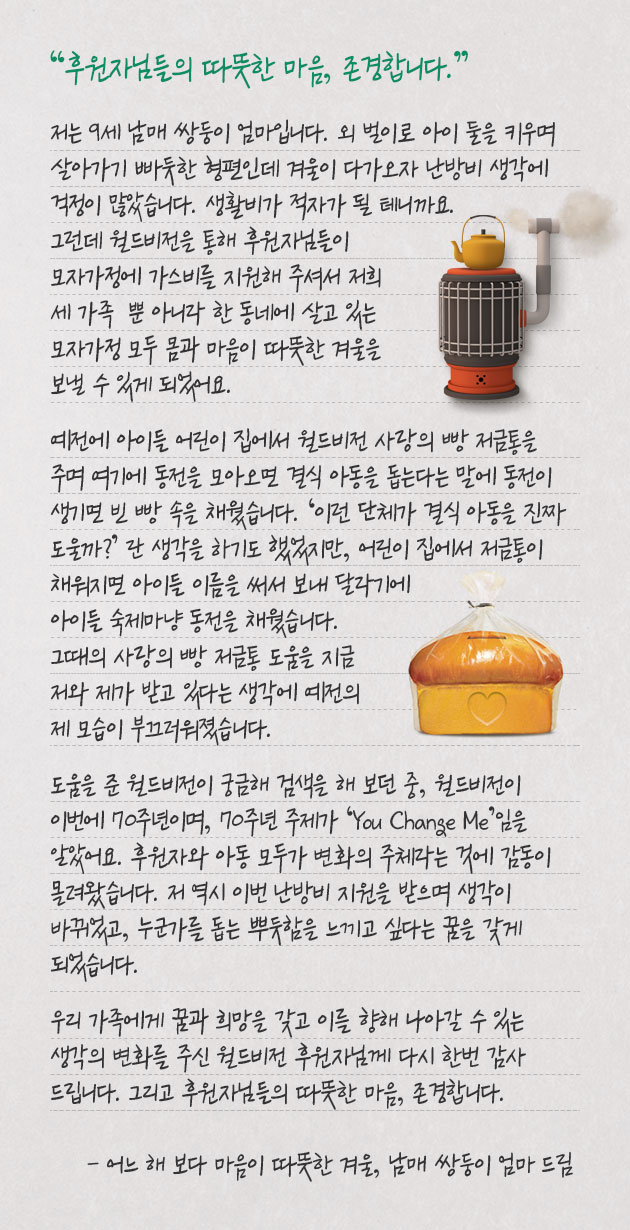 “후원자님들의 따뜻한 마음, 존경합니다.”
저는 9세 남매 쌍둥이 엄마입니다. 외 벌이로 아이 둘을 키우며
살아가기 빠듯한 형편인데 겨울이 다가오자 난방비 생각에
걱정이 많았습니다. 생활비가 적자가 될 테니까요.
그런데 월드비전을 통해 후원자님들이
모자가정에 가스비를 지원해 주셔서 저희
세 가족 뿐 아니라 한 동네에 살고 있는
모자가정 모두 몸과 마음이 따뜻한 겨울을
보낼 수 있게 되었어요.
예전에 아이들 어린이 집에서 월드비전 사랑의 빵 저금통을
주며 여기에 동전을 모아오면 결식 아동을 돕는다는 말에 동전이
생기면 빈 빵 속을 채웠습니다. ‘이런 단체가 결식 아동을 진짜
도울까?’ 란 생각을 하기도 했었지만, 어린이 집에서 저금통이
채워지면 아이들 이름을 써서 보내 달라기에
아이들 숙제마냥 동전을 채웠습니다.
그때의 사랑의 빵 저금통 도움을 지금
저와 제가 받고 있다는 생각에 예전의
제 모습이 부끄러워졌습니다.
도움을 준 월드비전이 궁금해 검색을 해 보던 중, 월드비전이
이번에 70주년이며, 70주년 주제가 ‘You Change Me’임을
알았어요. 후원자와 아동 모두가 변화의 주체라는 것에 감동이
몰려왔습니다. 저 역시 이번 난방비 지원을 받으며 생각이
바뀌었고, 누군가를 돕는 뿌듯함을 느끼고 싶다는 꿈을 갖게
되었습니다.
우리 가족에게 꿈과 희망을 갖고 이를 향해 나아갈 수 있는
생각의 변화를 주신 월드비전 후원자님께 다시 한번 감사
드립니다. 그리고 후원자님들의 따뜻한 마음, 존경합니다.
- 어느 해 보다 마음이 따뜻한 겨울, 남매 쌍둥이 엄마 드림